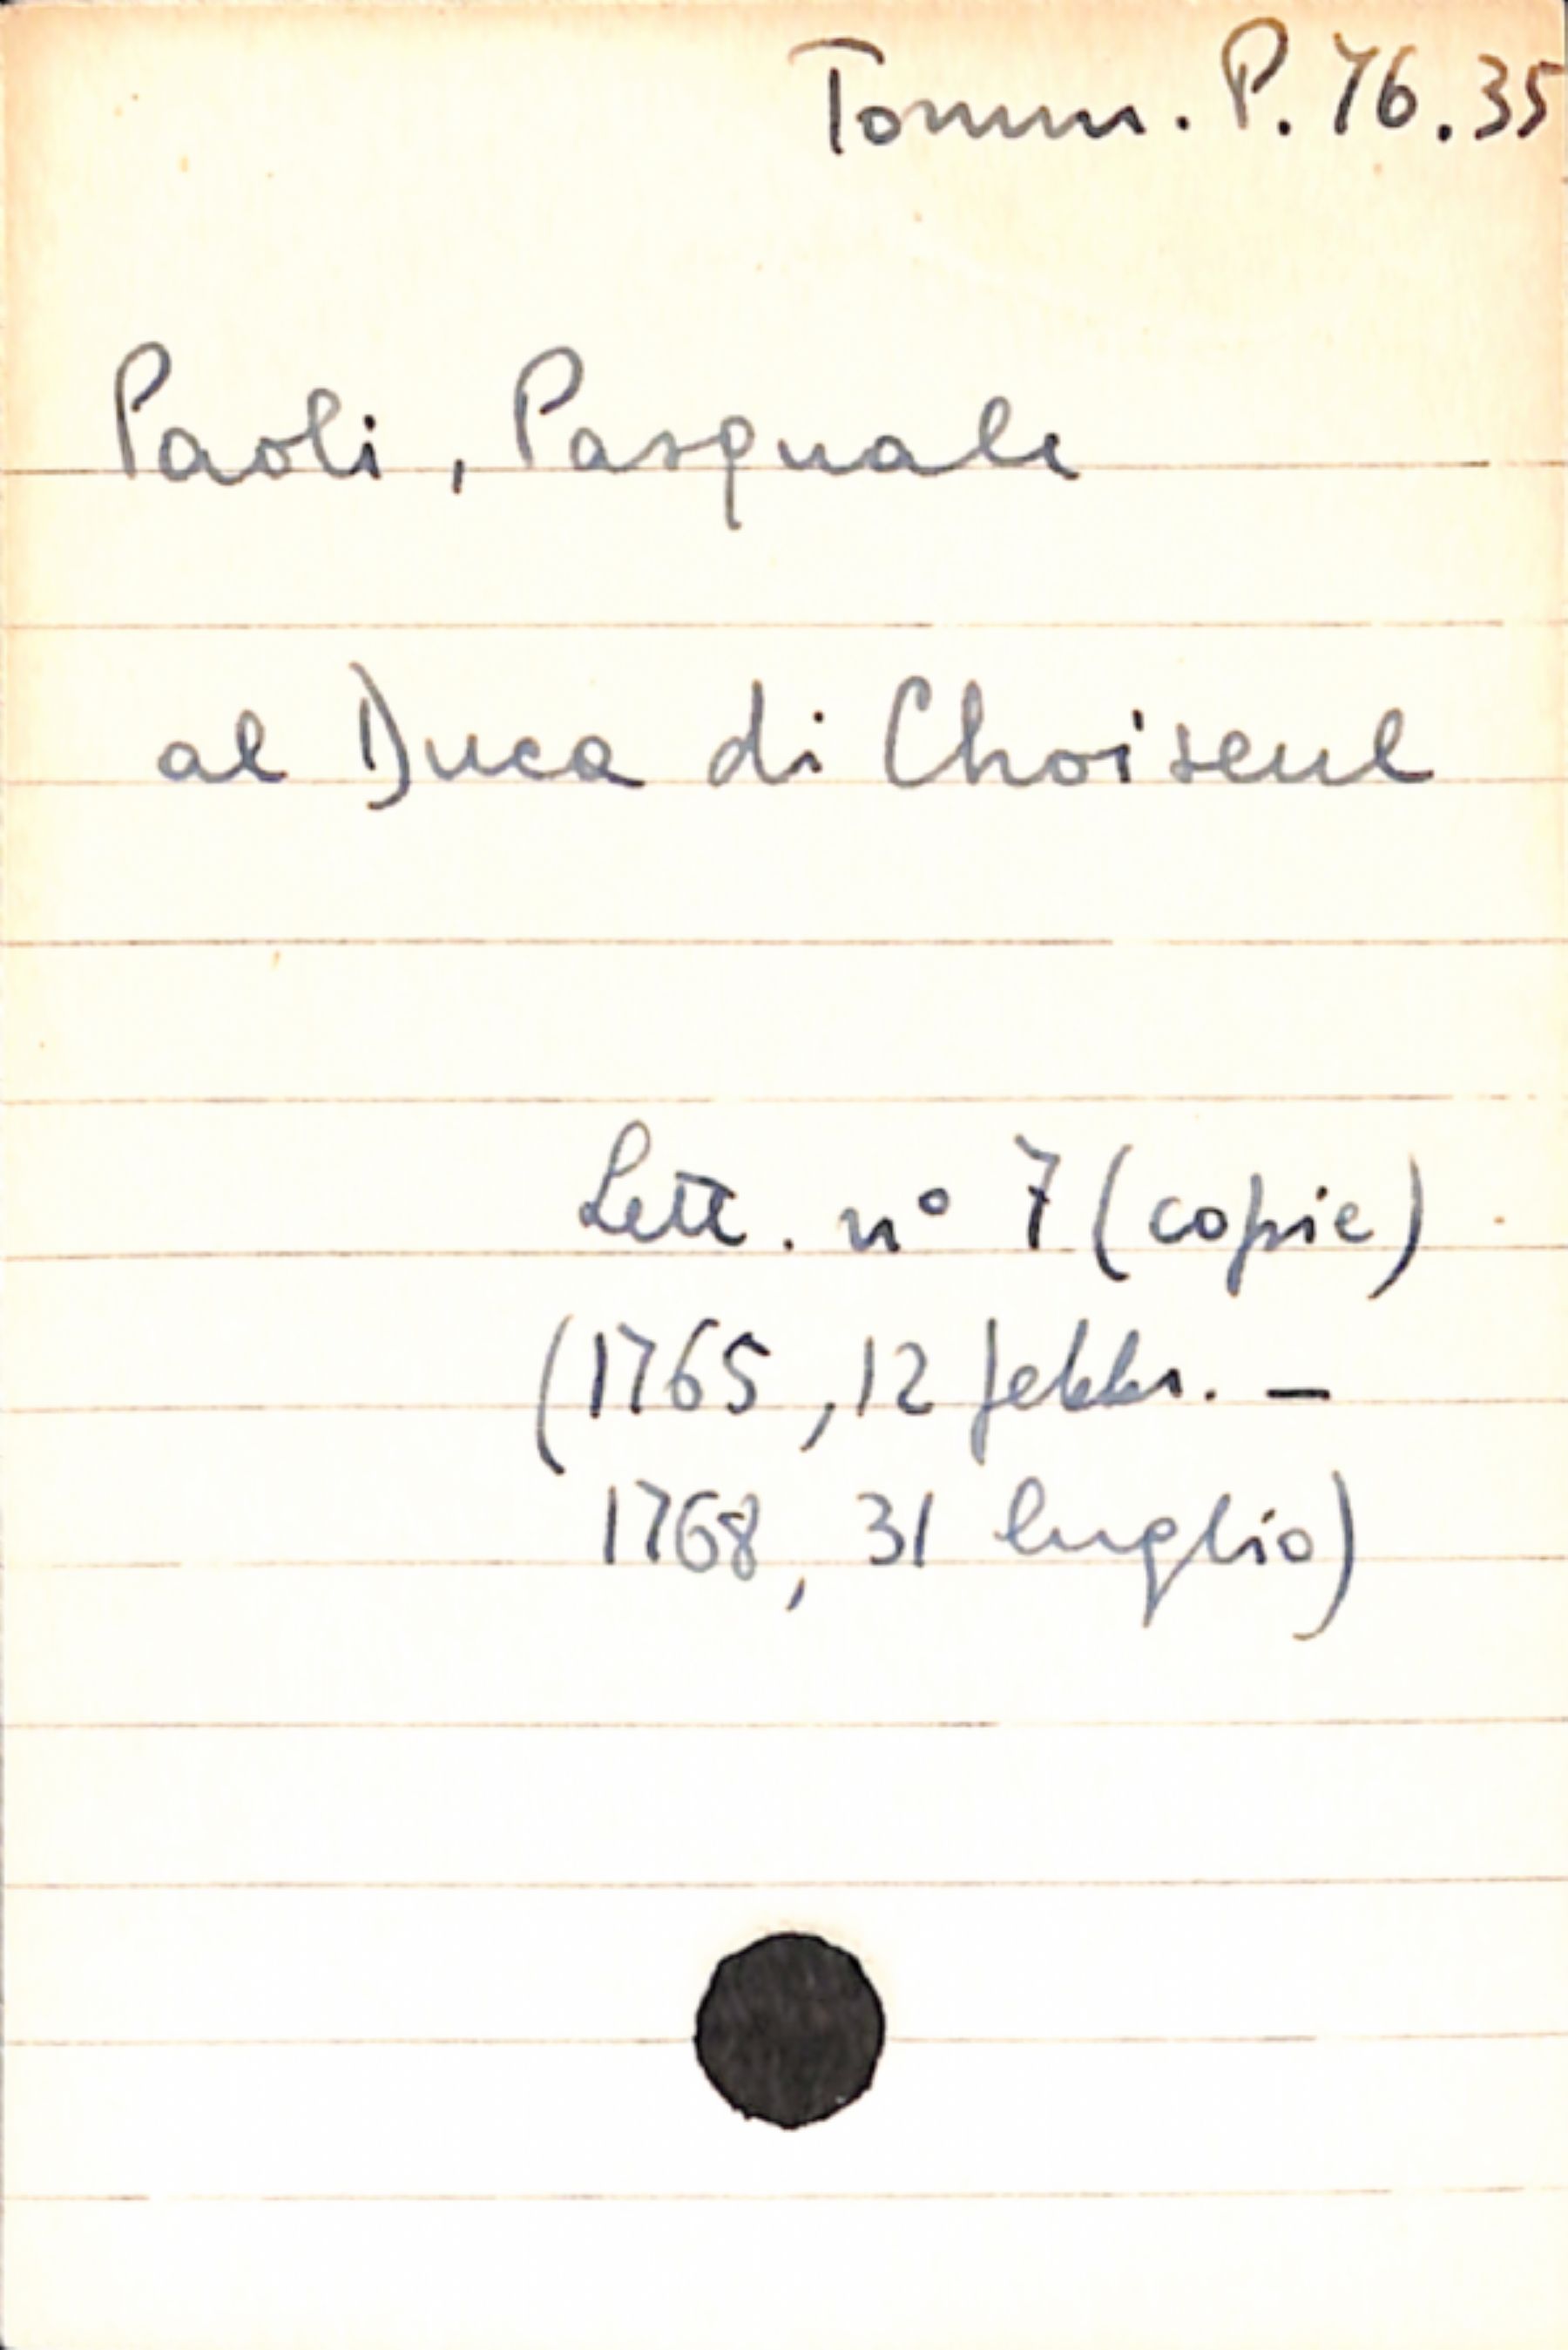 Tomm. P. 76.35
Paoli, Pasquale
al Duca di Choiseul
Lett. n° 7 (copie)
(1765, 12 febbr. –
1768, 31 luglio)